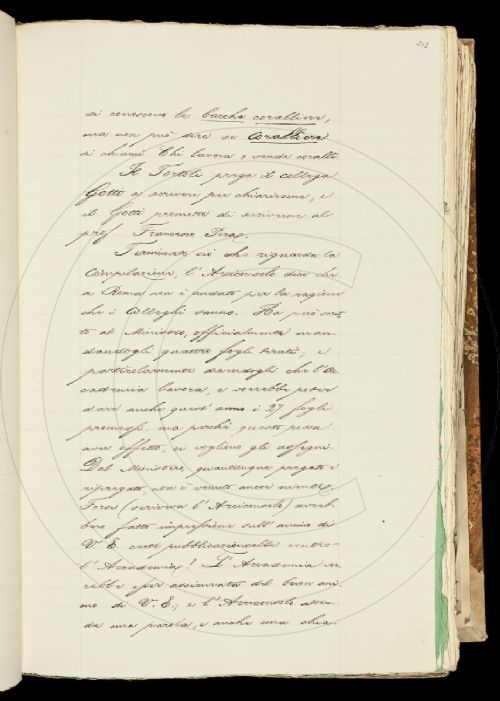 213
di conoscere le barche corallieri,
ma non può dire se Coralliere
si chiami chi lavora o vende coralli.
Il Tortoli prega il collega
Gotti a scrivere per chiarirsene; e
il Gotti promette di scriverne al
prof. Francesco Perez.
Terminato ciò che riguarda la
Compilazione, l'Arciconsolo dice che
a Roma non è andato per la ragione
che i Colleghi sanno. Ha però scrit-
to al Ministro, officialmente man-
dandogli quattro fogli tirati, e
particolarmente dicendogli che l'Ac-
cademia lavora, e vorrebbe poter
dare anche quest'anno i 27 fogli
promessi: ma perchè questo possa
aver effetto, ci vogliono gli assegni.
Dal Ministero, quantunque pregato e
ripregato, non è venuto ancor niente.
Forse (scriveva l'Arciconsolo) avreb-
bero fatto impressione sull'animo di
V. E. certe pubblicazioncelle contro
l'Accademia? L'Accademia vor-
rebbe esser assicurata del buon ani-
mo di V. E.; e l'Arciconsolo atten-
de una parola, e anche una chia-